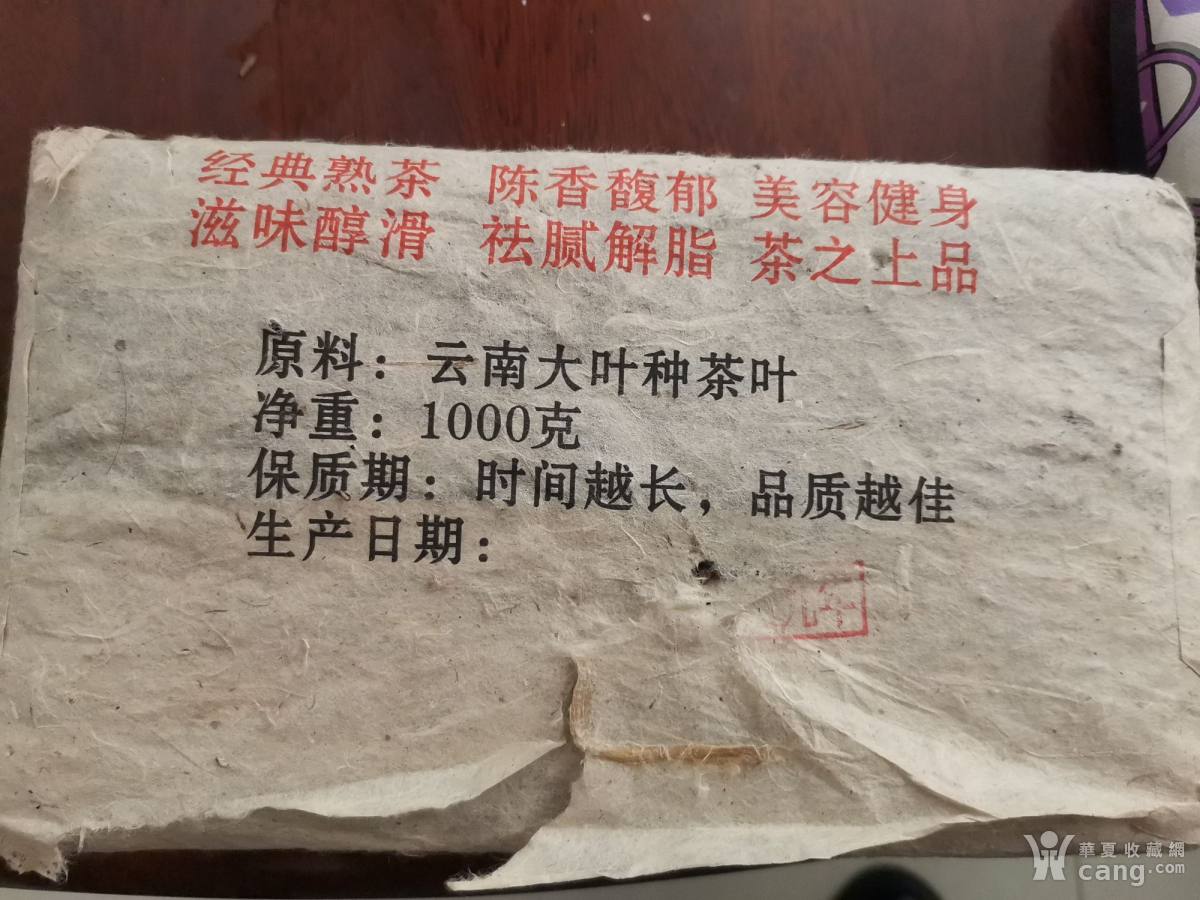 经典熟茶 陈香馥郁 美容健身
滋味醇滑 祛腻解脂 茶之上品
原料：云南大叶种茶叶
净重：1000克
保质期：时间越长，品质越佳
生产日期：
華夏收藏網
cang.com